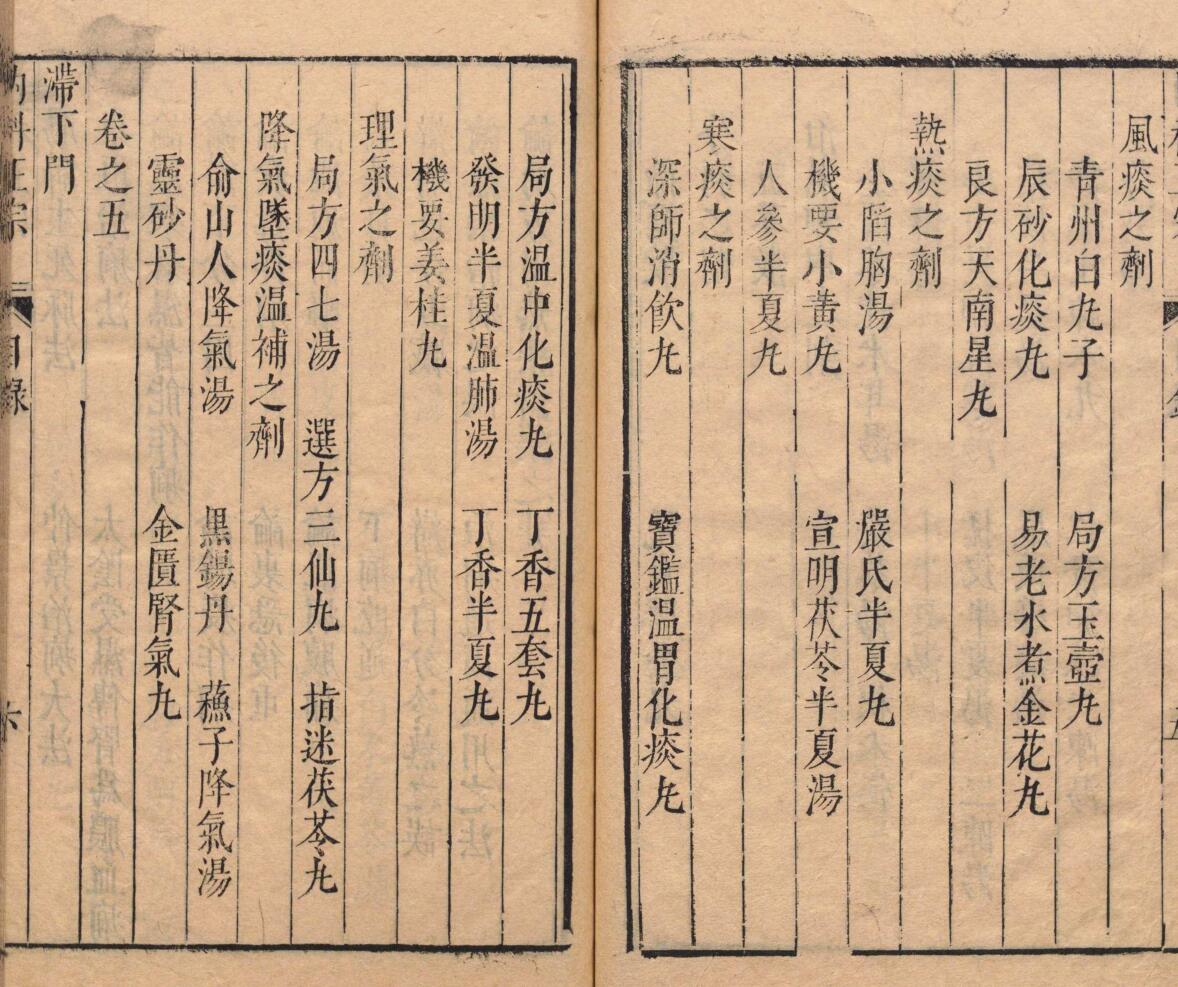 風痰之劑
青州白丸子 局方玉壺丸
辰砂化痰丸 易老水煮金花丸
良方天南星丸
熱痰之劑
小䧟胸湯 嚴氏半夏丸
機要小黃丸 宣明茯苓半夏湯
人參半夏丸
寒痰之劑
深師消飲丸 寶鑑温胃化痰丸
局方温中化痰丸 丁香五套丸
發明半夏温肺湯 丁香半夏丸
機要姜桂丸
理氣之劑
局方四七湯 選方三仙丸 指迷茯苓丸
降氣墜痰温補之劑
俞山人降氣湯 黑錫丹 蘓子降氣湯
靈砂丹 金匱腎氣丸
卷之五
滯下門
科正宗 目錄 六